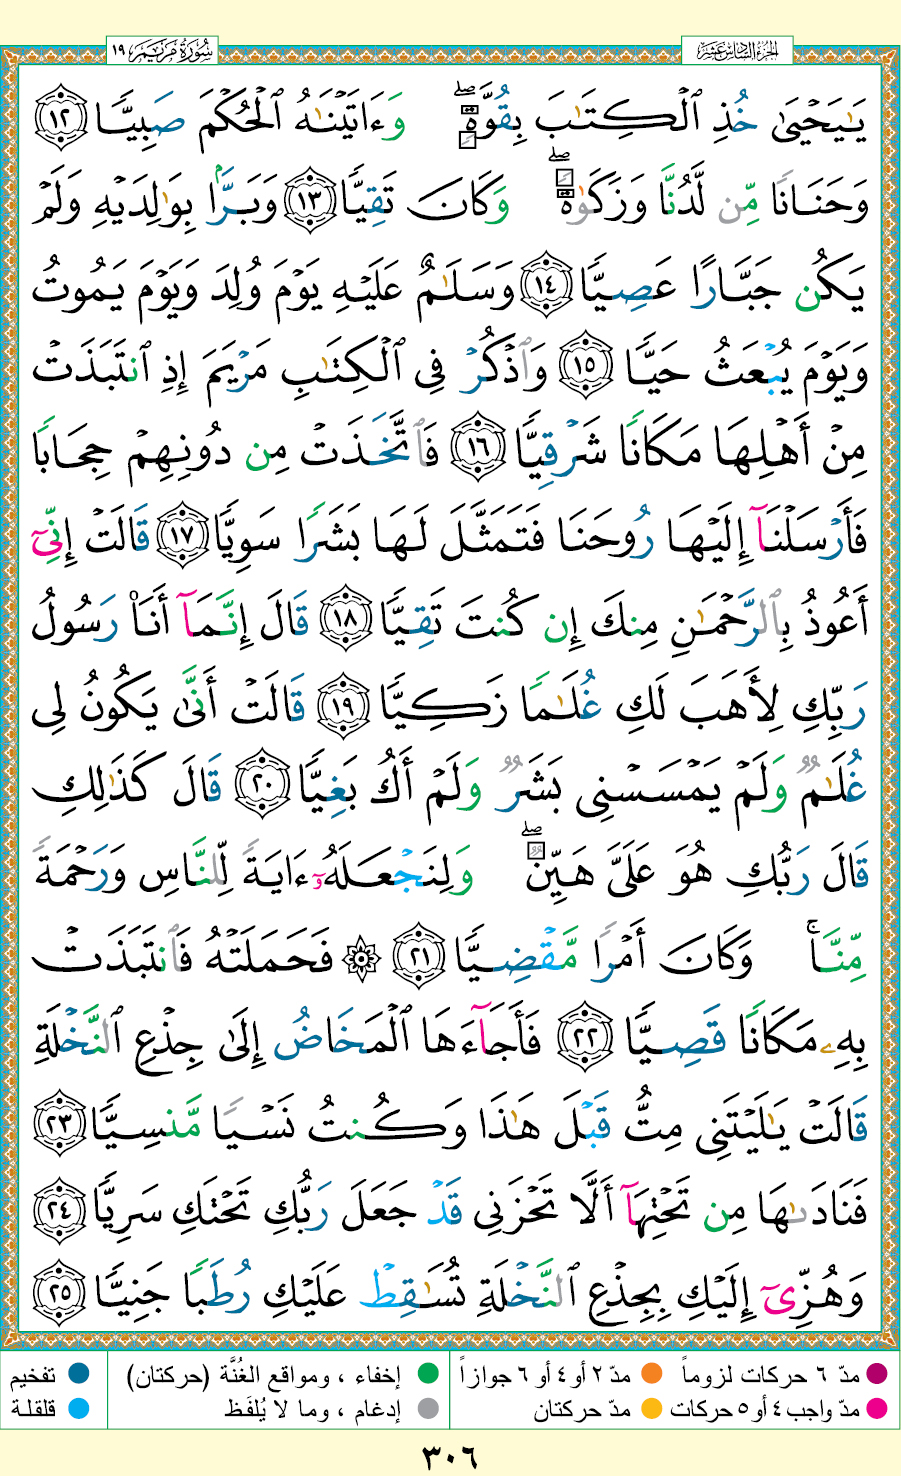 سُورَةُ مَرْيَم ١٩
الجُزءُ السَّادِسَ عَشَر
يَـٰيَحْيَىٰ خُذِ ٱلْكِتَـٰبَ بِقُوَّةٍۖ وَءَاتَيْنَـٰهُ ٱلْحُكْمَ صَبِيًّا ١٢
وَحَنَانًا مِّن لَّدُنَّا وَزَكَوٰةًۖ وَكَانَ تَقِيًّا ١٣ وَبَرًّۢا بِوَٰلِدَيْهِ وَلَمْ
يَكُن جَبَّارًا عَصِيًّا ١٤ وَسَلَـٰمٌ عَلَيْهِ يَوْمَ وُلِدَ وَيَوْمَ يَمُوتُ
وَيَوْمَ يُبْعَثُ حَيًّا ١٥ وَٱذْكُرْ فِى ٱلْكِتَـٰبِ مَرْيَمَ إِذِ ٱنتَبَذَتْ
مِنْ أَهْلِهَا مَكَانًا شَرْقِيًّا ١٦ فَٱتَّخَذَتْ مِن دُونِهِمْ حِجَابًا
فَأَرْسَلْنَآ إِلَيْهَا رُوحَنَا فَتَمَثَّلَ لَهَا بَشَرًا سَوِيًّا ١٧ قَالَتْ إِنِّىٓ
أَعُوذُ بِٱلرَّحْمَـٰنِ مِنكَ إِن كُنتَ تَقِيًّا ١٨ قَالَ إِنَّمَآ أَنَا۠ رَسُولُ
رَبِّكِ لِأَهَبَ لَكِ غُلَـٰمًا زَكِيًّا ١٩ قَالَتْ أَنَّىٰ يَكُونُ لِى
غُلَـٰمٌ وَلَمْ يَمْسَسْنِى بَشَرٌ وَلَمْ أَكُ بَغِيًّا ٢٠ قَالَ كَذَٰلِكِ
قَالَ رَبُّكِ هُوَ عَلَىَّ هَيِّنٌۖ وَلِنَجْعَلَهُۥٓ ءَايَةً لِّلنَّاسِ وَرَحْمَةً
مِّنَّاۚ وَكَانَ أَمْرًا مَّقْضِيًّا ٢١ ۞ فَحَمَلَتْهُ فَٱنتَبَذَتْ
بِهِۦ مَكَانًا قَصِيًّا ٢٢ فَأَجَآءَهَا ٱلْمَخَاضُ إِلَىٰ جِذْعِ ٱلنَّخْلَةِ
قَالَتْ يَـٰلَيْتَنِى مِتُّ قَبْلَ هَـٰذَا وَكُنتُ نَسْيًا مَّنسِيًّا ٢٣
فَنَادَىٰهَا مِن تَحْتِهَآ أَلَّا تَحْزَنِى قَدْ جَعَلَ رَبُّكِ تَحْتَكِ سَرِيًّا ٢٤
وَهُزِّىٓ إِلَيْكِ بِجِذْعِ ٱلنَّخْلَةِ تُسَـٰقِطْ عَلَيْكِ رُطَبًا جَنِيًّا ٢٥
مدّ ٦ حركات لزوماً مدّ ٢ أو ٤ أو ٦ جوازاً إخفاء ، ومواقع الغُنَّة (حركتان) تفخيم
مدّ واجب ٤ أو ٥ حركات مدّ حركتان إدغام ، وما لا يُلفَظ قلقلة
٣٠٦